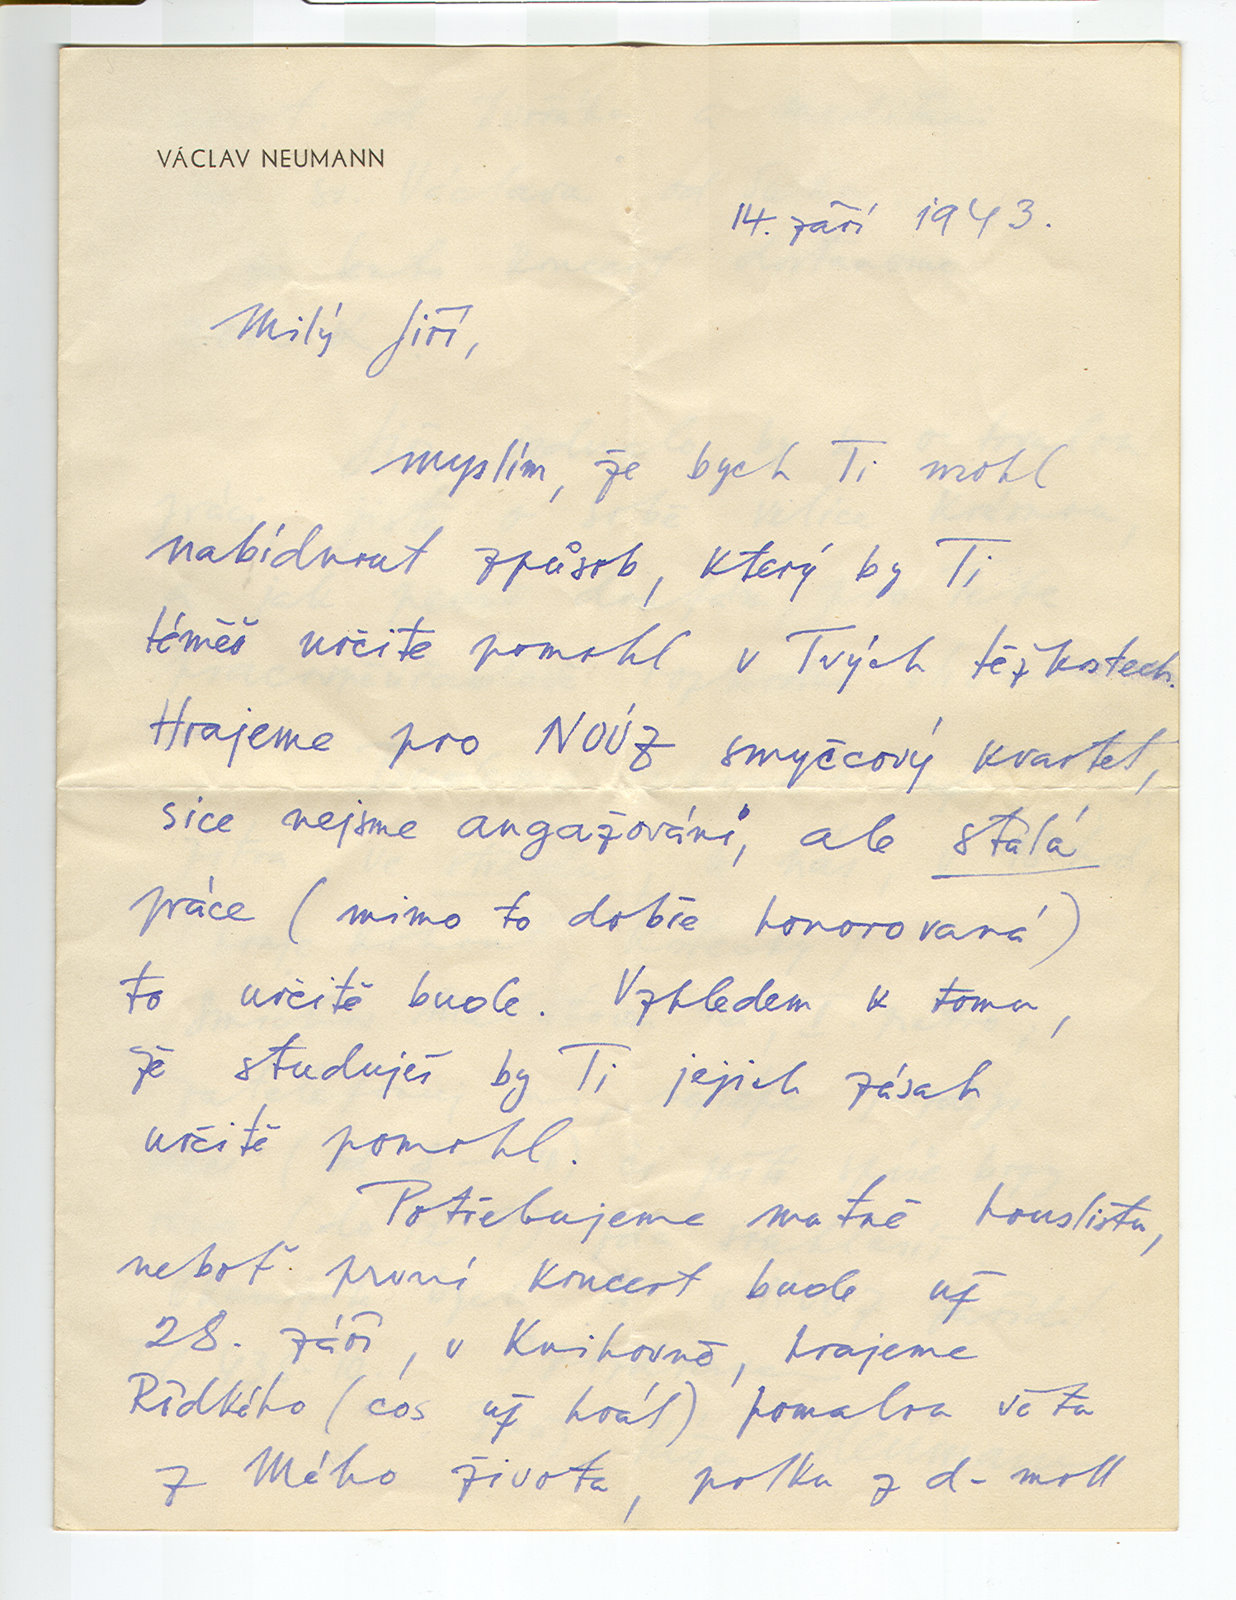 VÁCLAV NEUMANN
14. září 1943.
Milý Jiří,
myslím, že bych Ti mohl
nabídnout způsob, který by Ti
téměř určitě pomohl v Tvých těžkostech.
Hrajeme pro NOÚZ smyčcový kvartet,
sice nejsme angažováni, ale stálá
práce (mimo to dobře honorovaná)
to určitě bude. Vzhledem k tomu,
že studuješ by Ti jejich zásah
určitě pomohl.
Potřebujeme nutně houslistu,
neboť první koncert bude už
28. září, v Knihovně, hrajeme
Řídkého (cos už hrál) pomalou větu
z Mého života, polku z d-moll